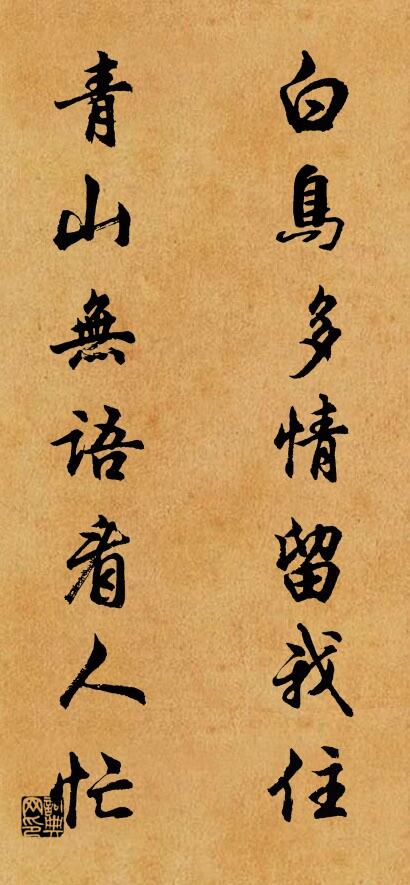 白鳥多情留我住
青山無語看人忙